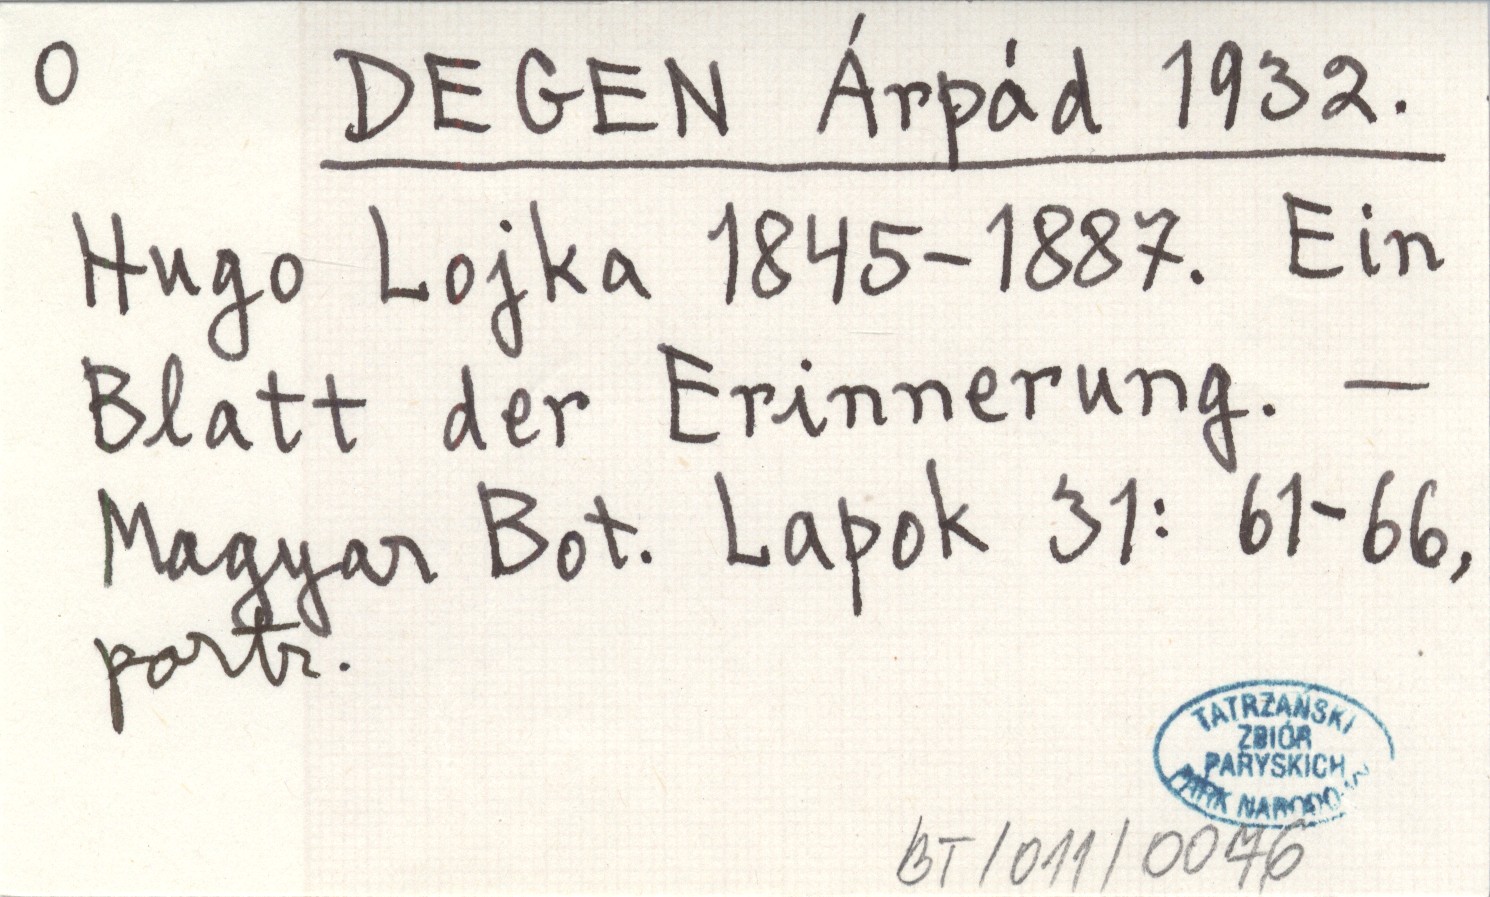 O DEGEN Árpád 1932.
Hugo Lojka 1845-1887. Ein
Blatt der Erinnerung. —
Magyar Bot. Lapok 31: 61-66,
portr.
TATRZAŃSKI
ZBIÓR
PARYSKICH
PARK NARODOW
BT/011/0076